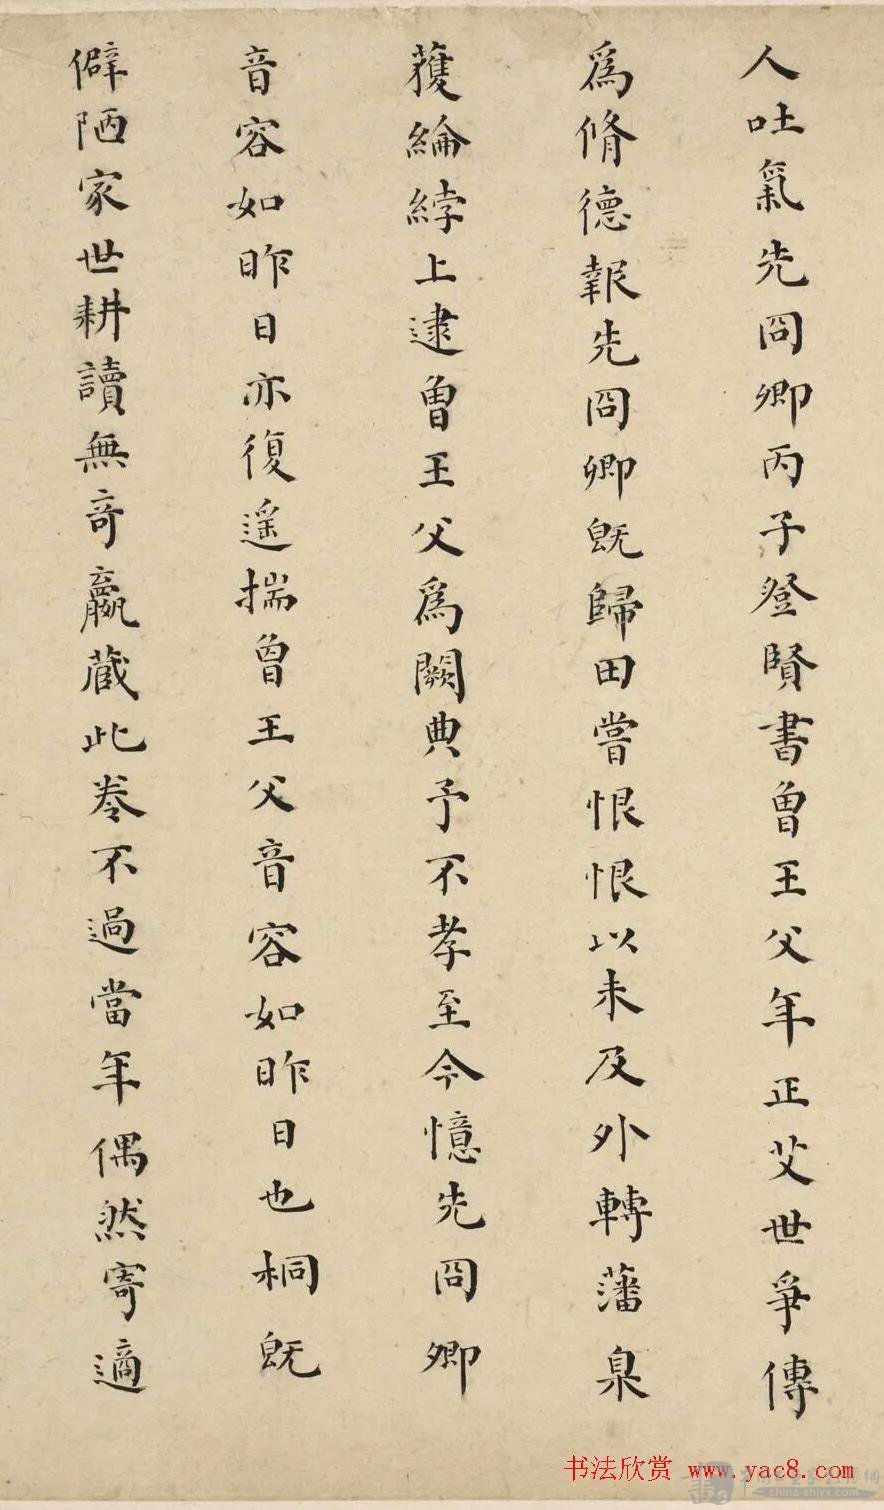 人吐氣先冏卿丙子登賢書曾王父年正艾世爭傳
為脩德報先冏卿既歸田嘗恨恨以未及外轉藩臬
蒦綸綍上逮曾王父為闕典予不孝至今憶先冏卿
音容如昨日亦復遥揣曾王父音容如昨日也桐既
僻陋家世耕讀無奇贏蔵此卷不過當年偶然寄適
书法欣赏 www.yac8.com
china-shjyx.com